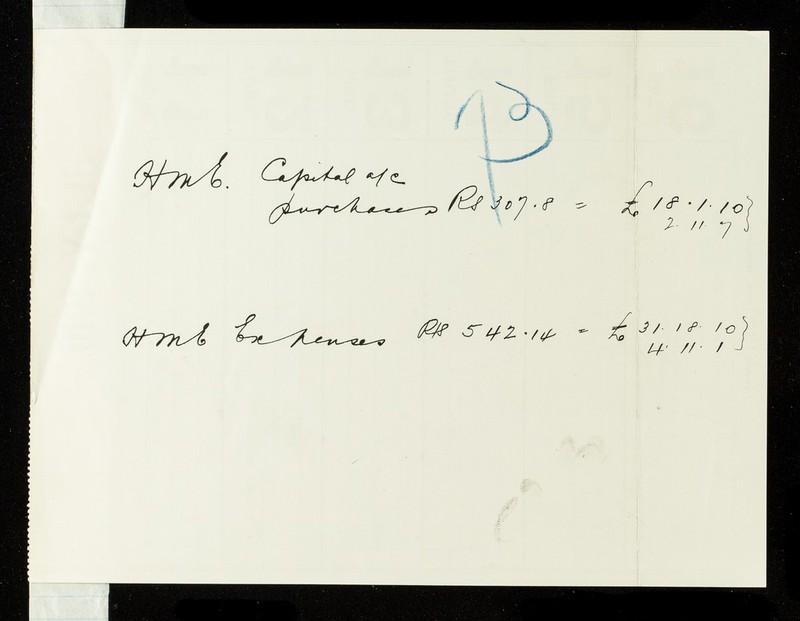 HME. Capital a/c
purchases Rs 307.8 = £ 18.1.10}
2.11.7
HME Expenses Rs 542.14 = £ 31.18.10}
4.11.1